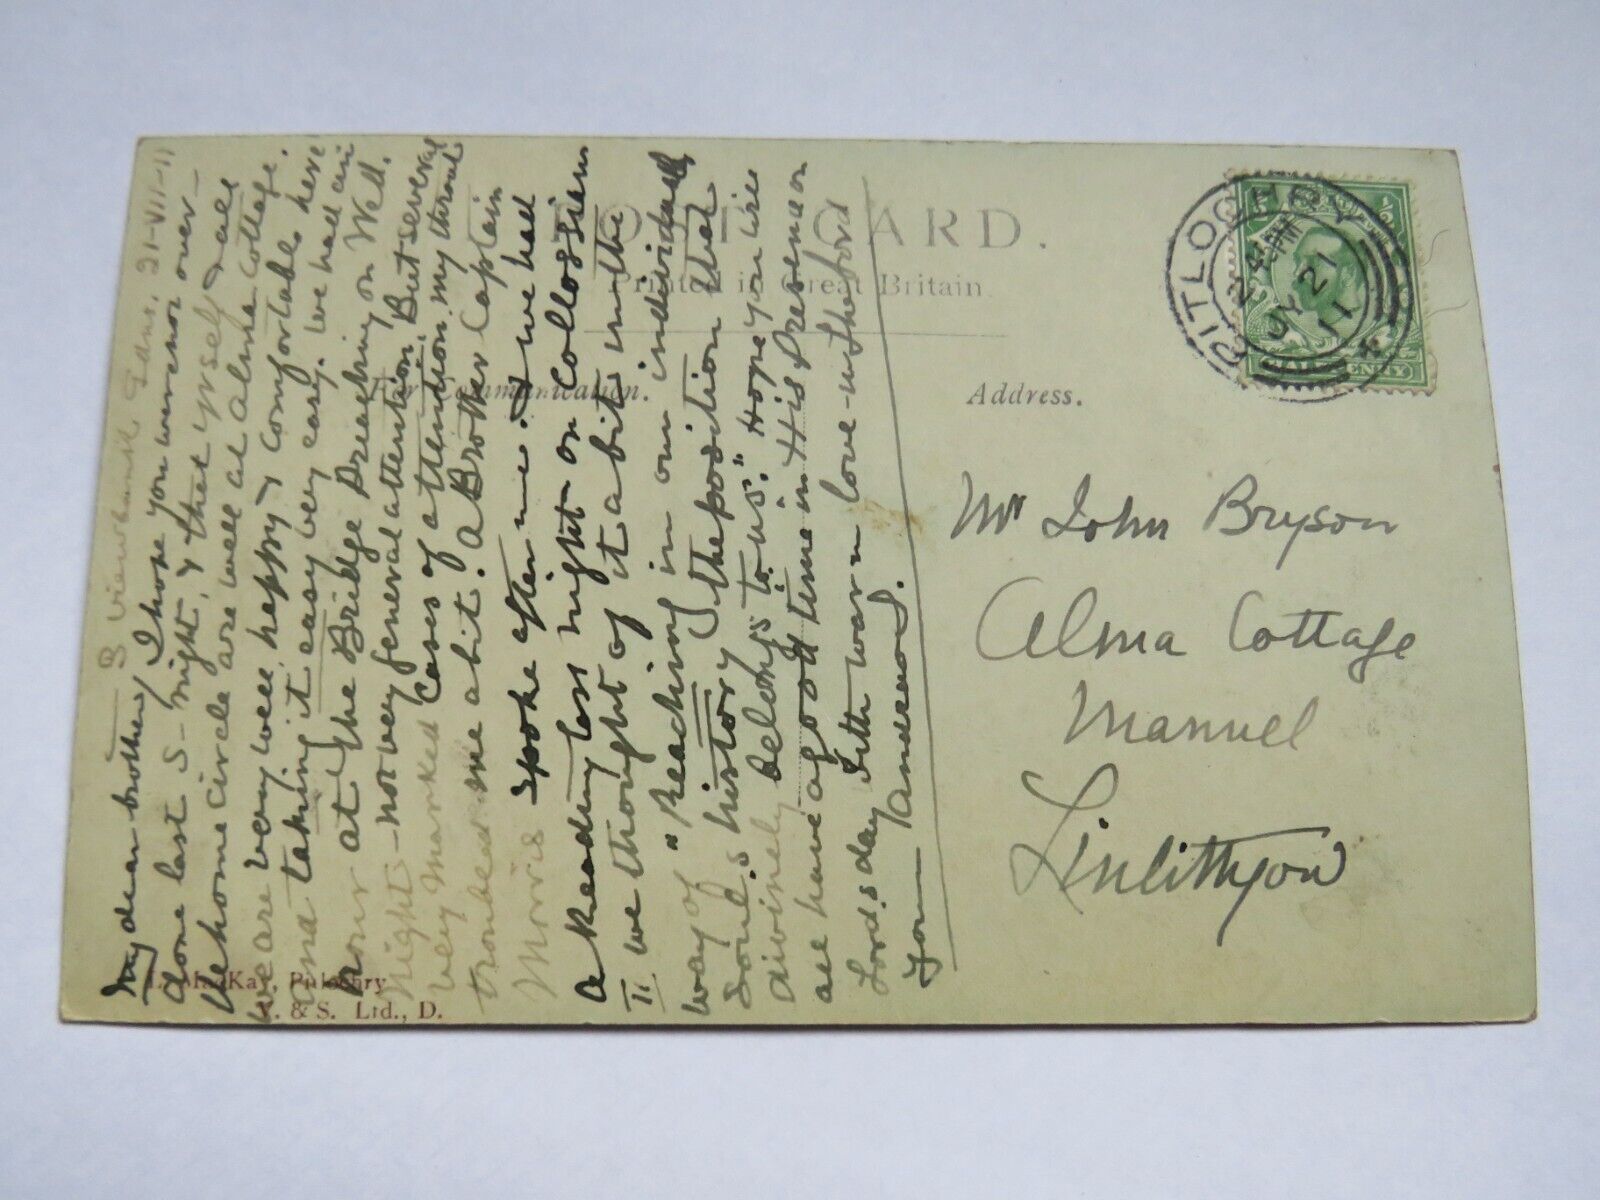 POST CARD.
Printed in Great Britain
For Communication.
Address.
PITLOCHRY
JY 21
11
HALFPENNY
Mr John Bryson
Alma Cottage
Manuel
Linlithgow
T. MacKay, Pitlochry
V. & S. Ltd., D.
8 Viewbank 21-VII-11
My dear brother, I hope you were not over-
done last S-night, & that yrself & all
the home circle are well at Alma Cottage.
We are very well happy & comfortable here
and taking it easy very easy. We had an
hour at the Bridge Preaching on Wed.
Night - not very general attention, But several
very marked cases of attention, my throat
troubled me a bit. A Brother Captain
Morris spoke after me. & we had
a Reading last night on Collossians
II we thought of it a bit in the
way of "Reaching in our individual
soul's history the position that
divinely belongs to us." Hope you will
all have a good time in His Presence on
Lord's day with warm love in the Lord
Yours Anderson J.